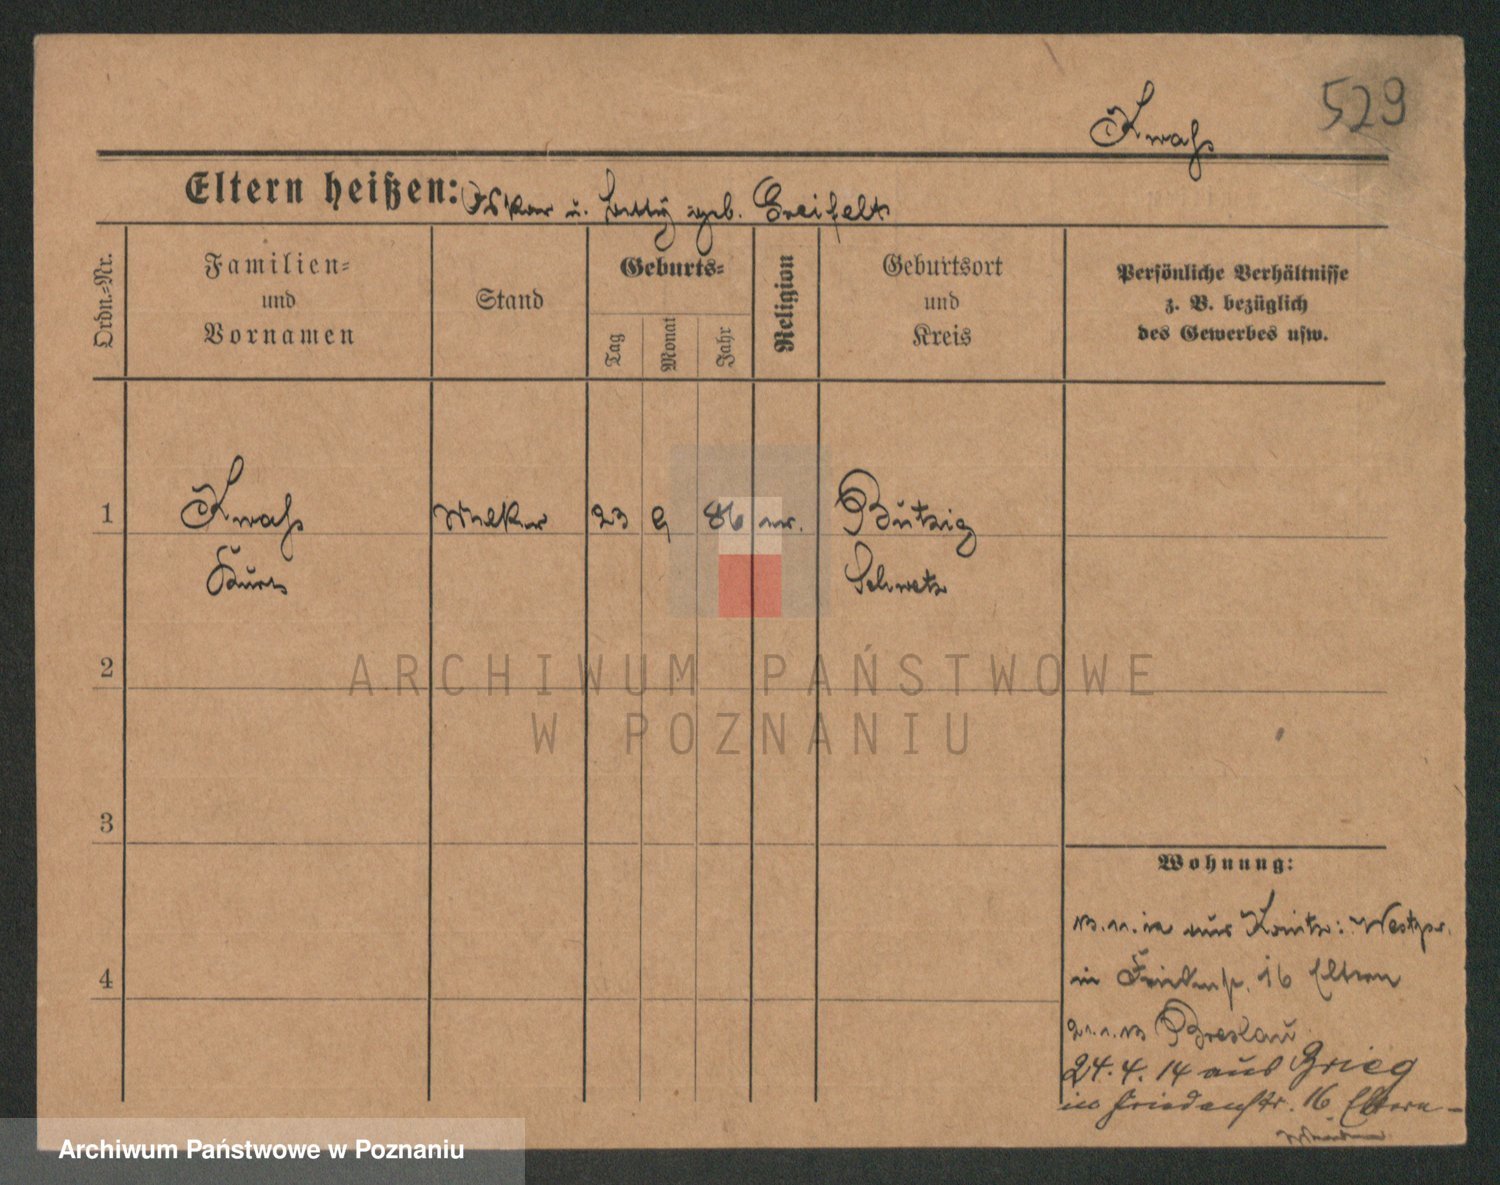 529
Kwass
Eltern heißen: Oskar u. Hetty geb. Greifelt
Ordn.-Nr.
Familien-
und
Vornamen
Stand
Geburts-
Tag
Monat
Jahr
Religion
Geburtsort
und
Kreis
Persönliche Verhältnisse
z. B. bezüglich
des Gewerbes usw.
1
Kwass
23 9 86
Butzig
Kurt
Schwetz
2
3
4
Wohnung:
aus Konitz: Westpr.
in Friedenstr. 16 Eltern
Breslau
24. 4. 14 aus Brieg
in Friedenstr. 16 Eltern -
ARCHIWUM PAŃSTWOWE
W POZNANIU
Archiwum Państwowe w Poznaniu